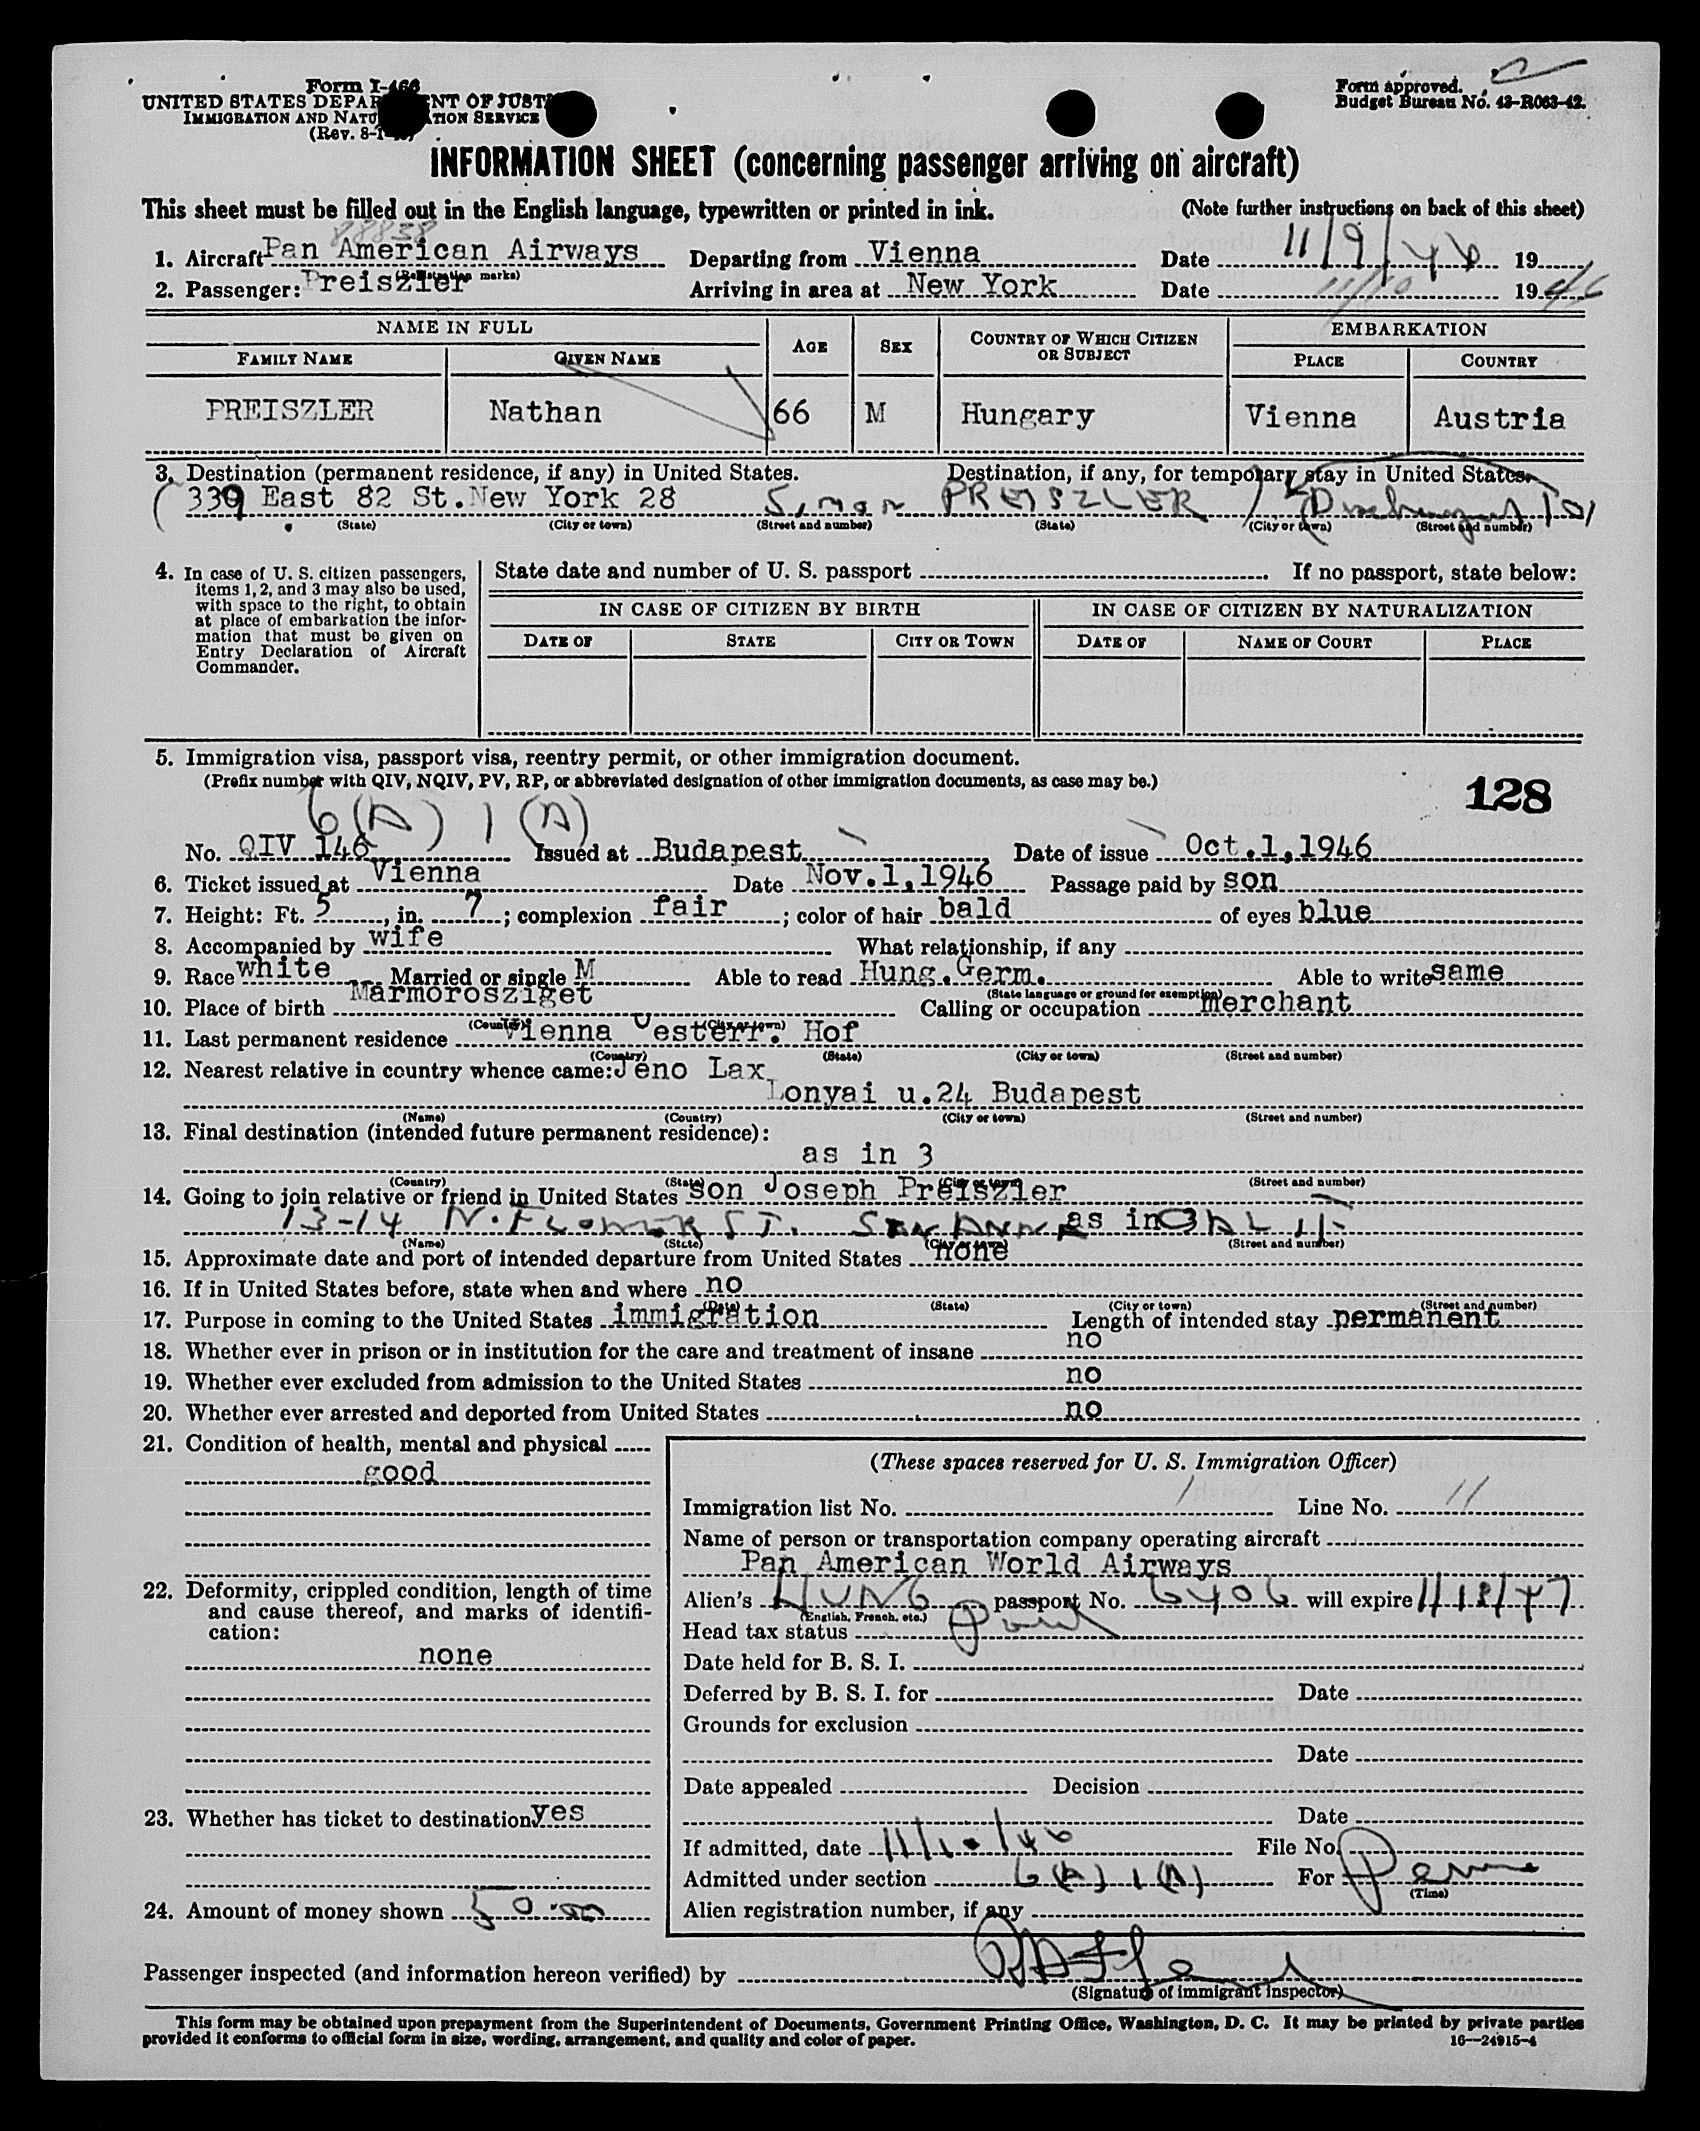 Form I-466
UNITED STATES DEPARTMENT OF JUSTICE
IMMIGRATION AND NATURALIZATION SERVICE
(Rev. 8-1-45)
Form approved.
Budget Bureau No. 43-R063-42.
INFORMATION SHEET (concerning passenger arriving on aircraft)
This sheet must be filled out in the English language, typewritten or printed in ink. (Note further instructions on back of this sheet)
88838
1. Aircraft Pan American Airways Departing from Vienna Date 11/9/46 19
(Registration marks)
2. Passenger: Preiszler Arriving in area at New York Date 11/10 1946
NAME IN FULL AGE SEX COUNTRY OF WHICH CITIZEN OR SUBJECT EMBARKATION
FAMILY NAME GIVEN NAME PLACE COUNTRY
PREISZLER Nathan 66 M Hungary Vienna Austria
3. Destination (permanent residence, if any) in United States. Destination, if any, for temporary stay in United States.
(339 East 82 St.New York 28 Simon PREISZLER)
(State) (City or town) (Street and number) (State) (City or town) (Street and number)
4. In case of U. S. citizen passengers,
items 1, 2, and 3 may also be used,
with space to the right, to obtain
at place of embarkation the infor-
mation that must be given on
Entry Declaration of Aircraft
Commander.
State date and number of U. S. passport If no passport, state below:
IN CASE OF CITIZEN BY BIRTH IN CASE OF CITIZEN BY NATURALIZATION
DATE OF STATE CITY OR TOWN DATE OF NAME OF COURT PLACE
5. Immigration visa, passport visa, reentry permit, or other immigration document.
(Prefix number with QIV, NQIV, PV, RP, or abbreviated designation of other immigration documents, as case may be.)
128
6(A) 1(A)
No. QIV 146 Issued at Budapest Date of issue Oct.1,1946
6. Ticket issued at Vienna Date Nov.1,1946 Passage paid by son
7. Height: Ft. 5, in. 7; complexion fair; color of hair bald of eyes blue
8. Accompanied by wife What relationship, if any
9. Race white Married or single M Able to read Hung.Germ. Able to write same
(State language or ground for exemption)
10. Place of birth Marmorosziget Calling or occupation merchant
(Country) (City or town)
11. Last permanent residence Vienna Oesterr. Hof
(Country) (State) (City or town) (Street and number)
12. Nearest relative in country whence came: Jeno Lax
Lonyai u.24 Budapest
(Name) (Country) (City or town) (Street and number)
13. Final destination (intended future permanent residence):
as in 3
(Country) (State) (City or town) (Street and number)
14. Going to join relative or friend in United States son Joseph Preiszler
13-14 N. FLOWER ST. SANTA ANNA as in 3 CALIF
(Name) (State) (City or town) (Street and number)
15. Approximate date and port of intended departure from United States none
16. If in United States before, state when and where no
(Date) (State) (City or town) (Street and number)
17. Purpose in coming to the United States immigration Length of intended stay permanent
18. Whether ever in prison or in institution for the care and treatment of insane no
19. Whether ever excluded from admission to the United States no
20. Whether ever arrested and deported from United States no
21. Condition of health, mental and physical
good
22. Deformity, crippled condition, length of time
and cause thereof, and marks of identifi-
cation:
none
23. Whether has ticket to destination yes
24. Amount of money shown 50.00
(These spaces reserved for U. S. Immigration Officer)
Immigration list No. 1 Line No. 11
Name of person or transportation company operating aircraft
Pan American World Airways
Alien's HUNG passport No. 6406 will expire 1/18/47
(English, French, etc.)
Head tax status Paid
Date held for B. S. I.
Deferred by B. S. I. for Date
Grounds for exclusion
Date
Date appealed Decision
Date
If admitted, date 11/10/46 File No.
Admitted under section 6(A) 1(A) For Perm
(Time)
Alien registration number, if any
Passenger inspected (and information hereon verified) by
(Signature of immigrant inspector)
This form may be obtained upon prepayment from the Superintendent of Documents, Government Printing Office, Washington, D. C. It may be printed by private parties
provided it conforms to official form in size, wording, arrangement, and quality and color of paper. 16—24915-4